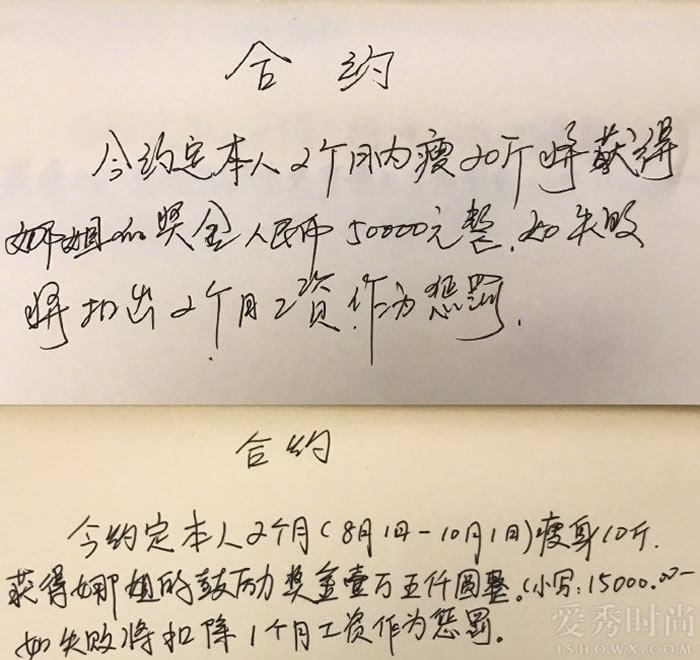 合约
今约定本人2个月内瘦20斤将获得
娜姐的奖金人民币50000元整.如失败
将扣出2个月工资作为惩罚.
合约
今约定本人2个月(8月1日-10月1日)瘦身10斤.
获得娜姐的鼓励奖金壹万五仟圆整.(小写:15000.00-
如失败将扣除1个月工资作为惩罚.
爱秀时尚
ISHOWX.COM